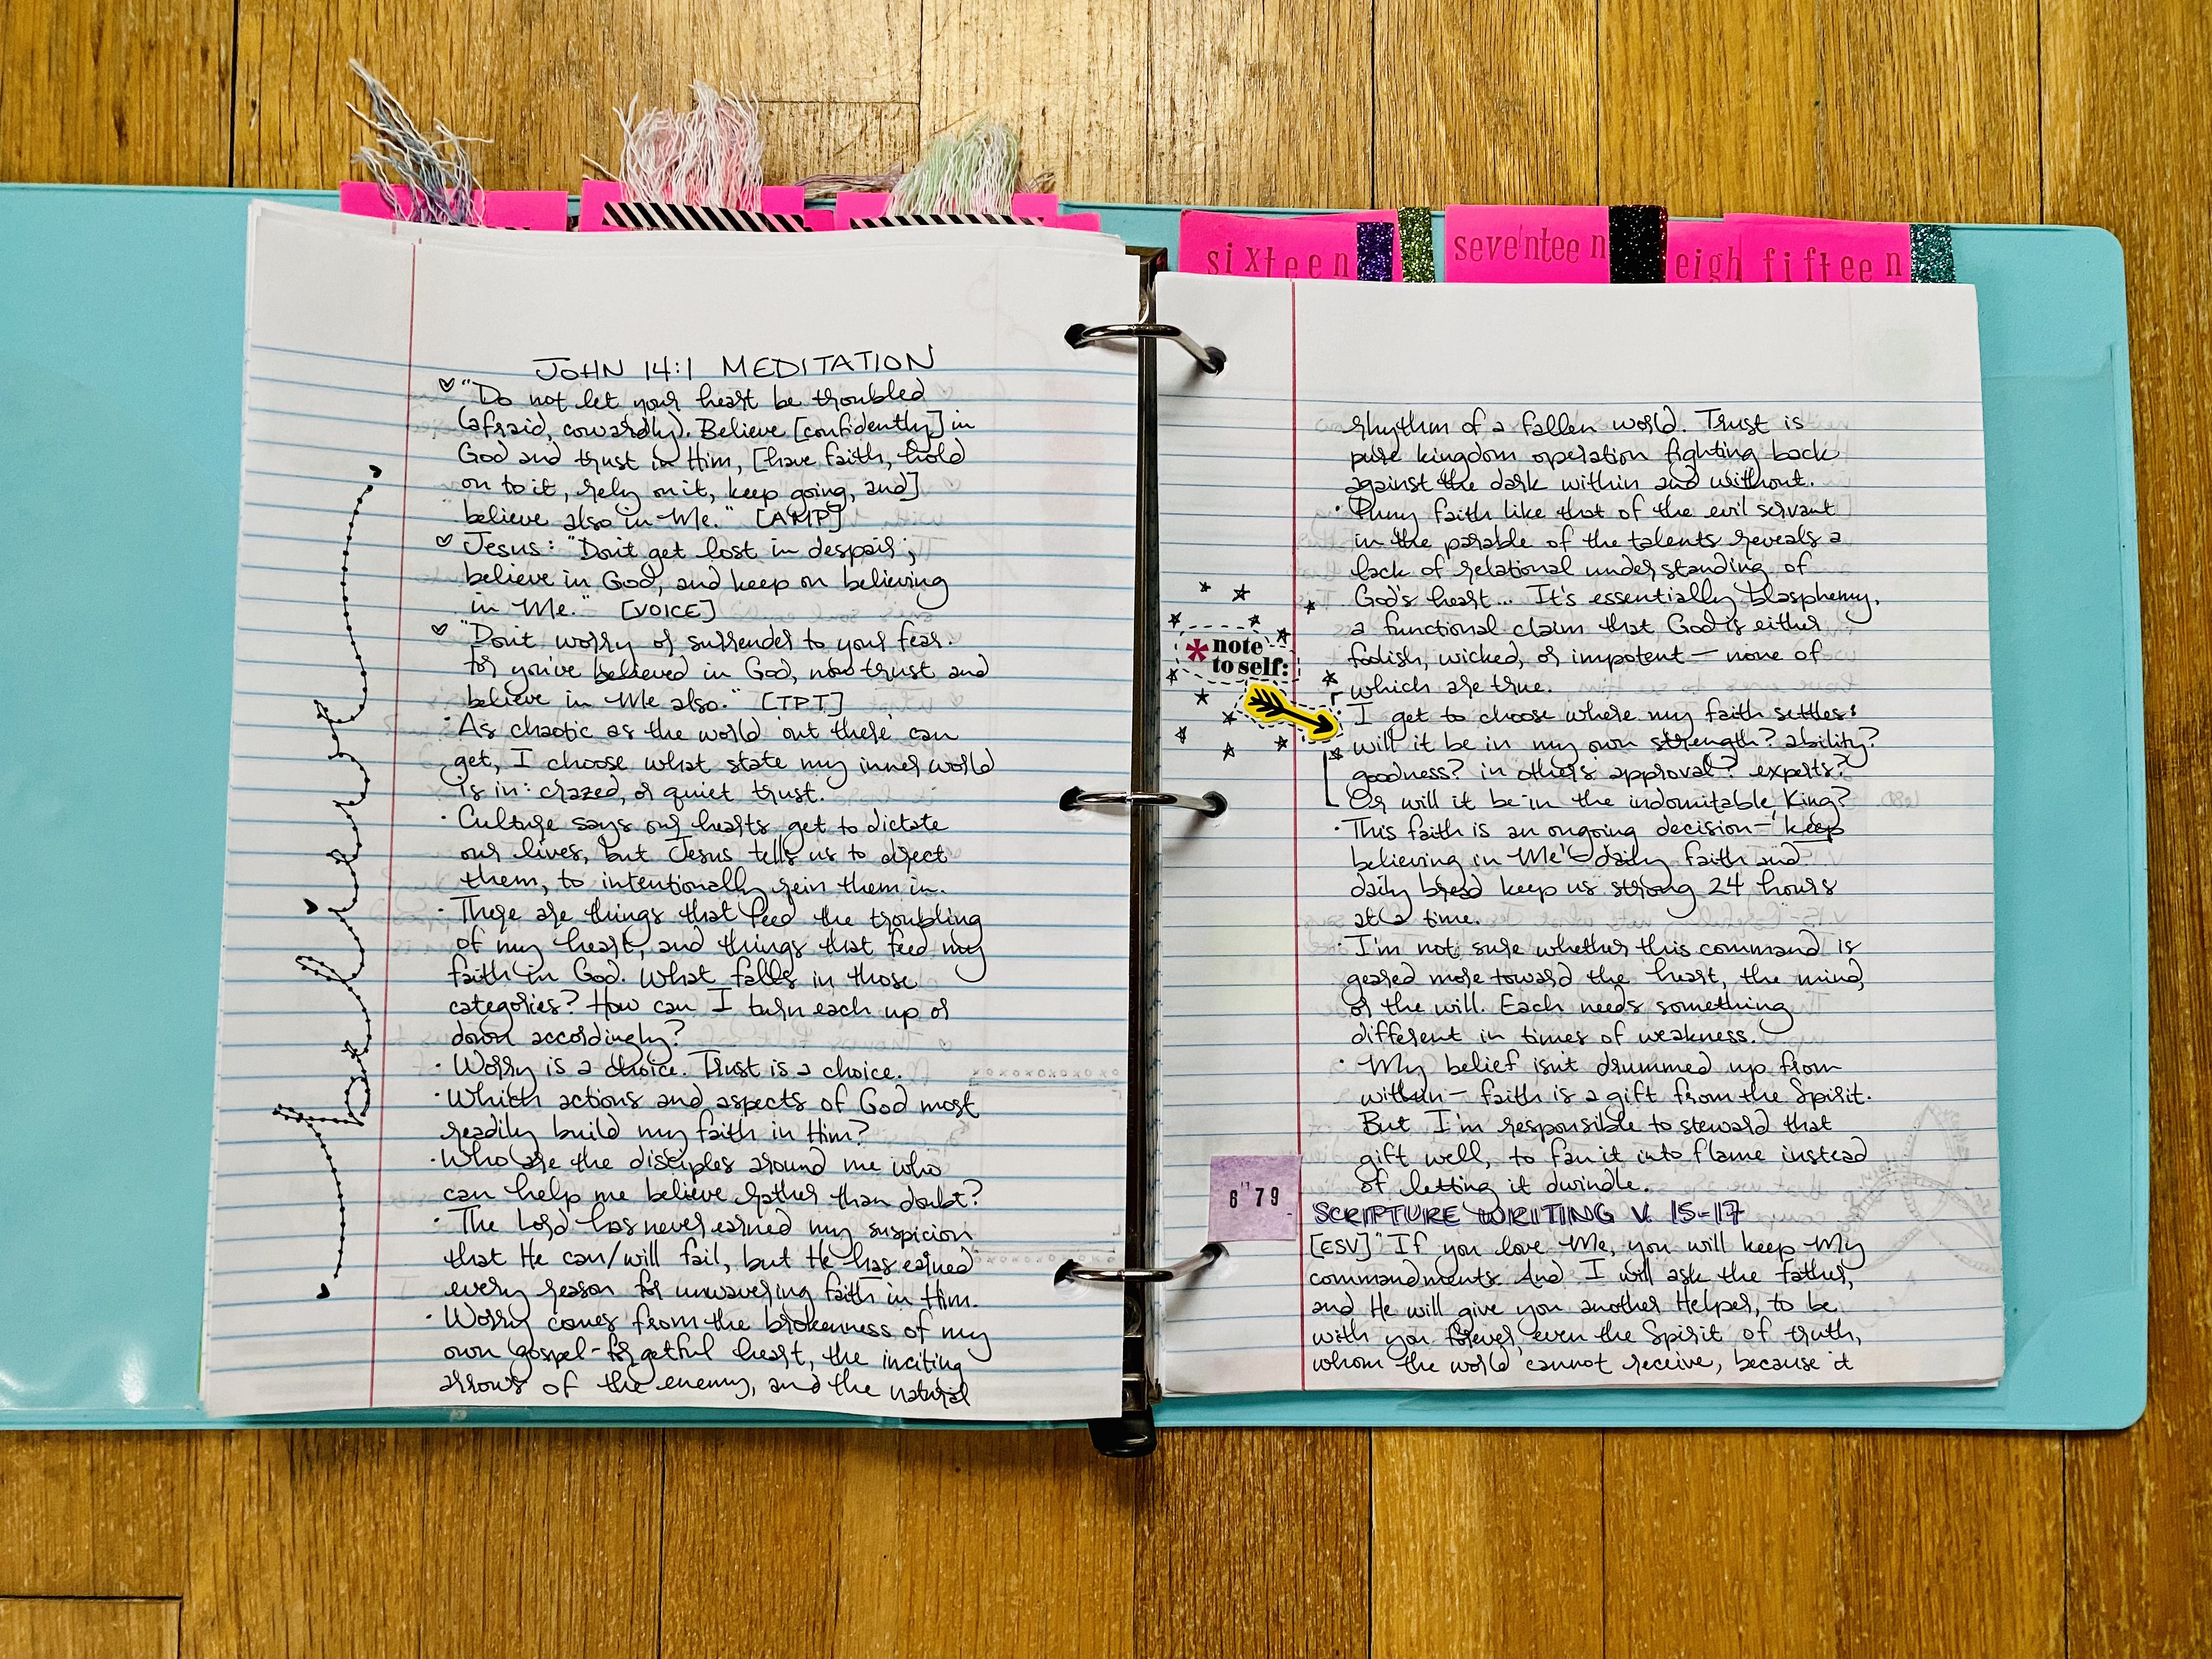 sixteen
seventeen
eigh
fifteen
JOHN 14:1 MEDITATION
"Do not let your heart be troubled
(afraid, cowardly). Believe [confidently] in
God and trust in Him, [have faith, hold
on to it, rely on it, keep going, and]
believe also in Me." [AMP]
Jesus: "Don't get lost in despair;
believe in God, and keep on believing
in Me." [VOICE]
"Don't worry or surrender to your fear.
For you've believed in God, now trust and
believe in Me also." [TPT]
· As chaotic as the world 'out there' can
get, I choose what state my inner world
is in: crazed, or quiet trust.
· Culture says our hearts get to dictate
our lives, but Jesus tells us to direct
them, to intentionally rein them in.
· There are things that feed the troubling
of my heart, and things that feed my
faith in God. What falls in those
categories? How can I turn each up or
down accordingly?
· Worry is a choice. Trust is a choice.
· Which actions and aspects of God most
readily build my faith in Him?
· Who are the disciples around me who
can help me believe rather than doubt?
· The Lord has never earned my suspicion
that He can/will fail, but He has earned
every reason for unwavering faith in Him.
· Worry comes from the brokenness of my
own gospel-forgetful heart, the inciting
arrows of the enemy, and the natural
rhythm of a fallen world. Trust is
pure kingdom operation fighting back
against the dark within and without.
· Puny faith like that of the evil servant
in the parable of the talents reveals a
lack of relational understanding of
God's heart... It's essentially blasphemy,
a functional claim that God is either
foolish, wicked, or impotent — none of
which are true.
*note
to self:
I get to choose where my faith settles:
will it be in my own strength? ability?
goodness? in others' approval? experts?
Or will it be in the indomitable King?
· This faith is an ongoing decision — 'keep
believing in Me' — daily faith and
daily bread keep us strong 24 hours
at a time.
· I'm not sure whether this command is
geared more toward the heart, the mind,
or the will. Each needs something
different in times of weakness.
· My belief isn't drummed up from
within — faith is a gift from the Spirit.
But I'm responsible to steward that
gift well, to fan it into flame instead
of letting it dwindle.
6 "79
SCRIPTURE WRITING V. 15-17
[ESV] "If you love Me, you will keep My
commandments. And I will ask the Father,
and He will give you another Helper, to be
with you forever, even the Spirit of truth,
whom the world cannot receive, because it